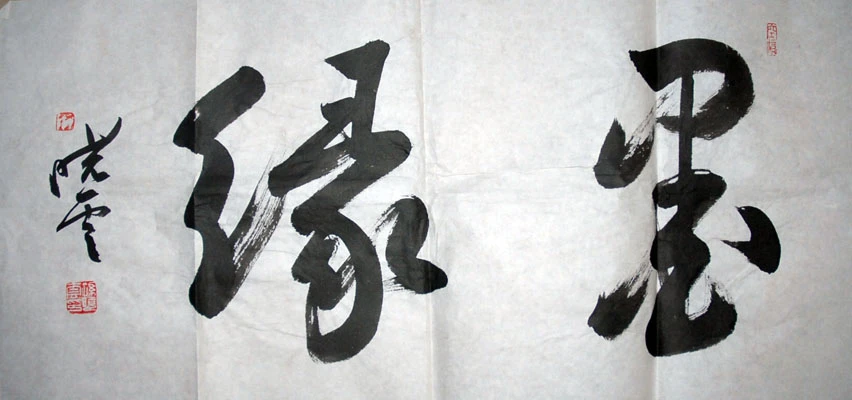 墨缘
晓云